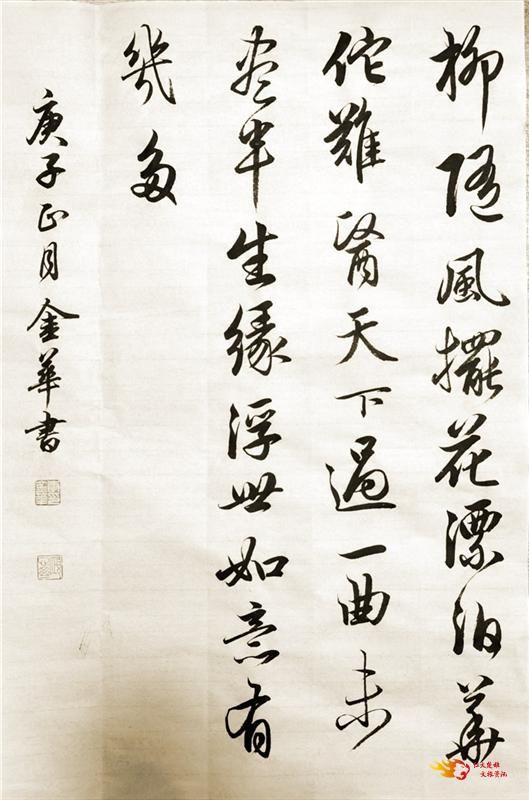 柳隨風擺花漂泊華
佗難醫天下過一曲未
尽半生緣浮世如意有
幾多
庚子正月金華書